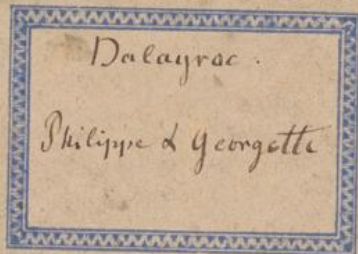 Dalayrac.
Philippe & Georgette